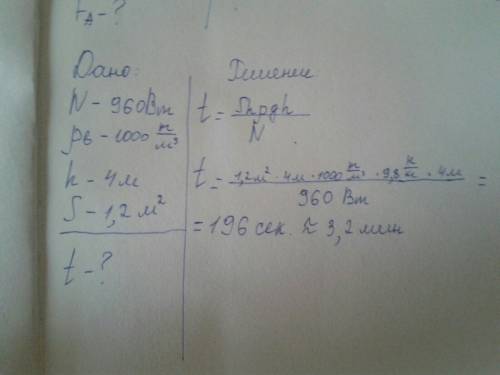 tA - ?
Дано:
N - 960 Вт
ρв - 1000 кг/м³
h - 4 м
S - 1,2 м²
t - ?
Решение
t = Shρgh / N
t = 1,2 м² · 4 м · 1000 кг/м³ · 9,8 н/кг · 4 м / 960 Вт =
= 196 сек. ≈ 3,2 мин